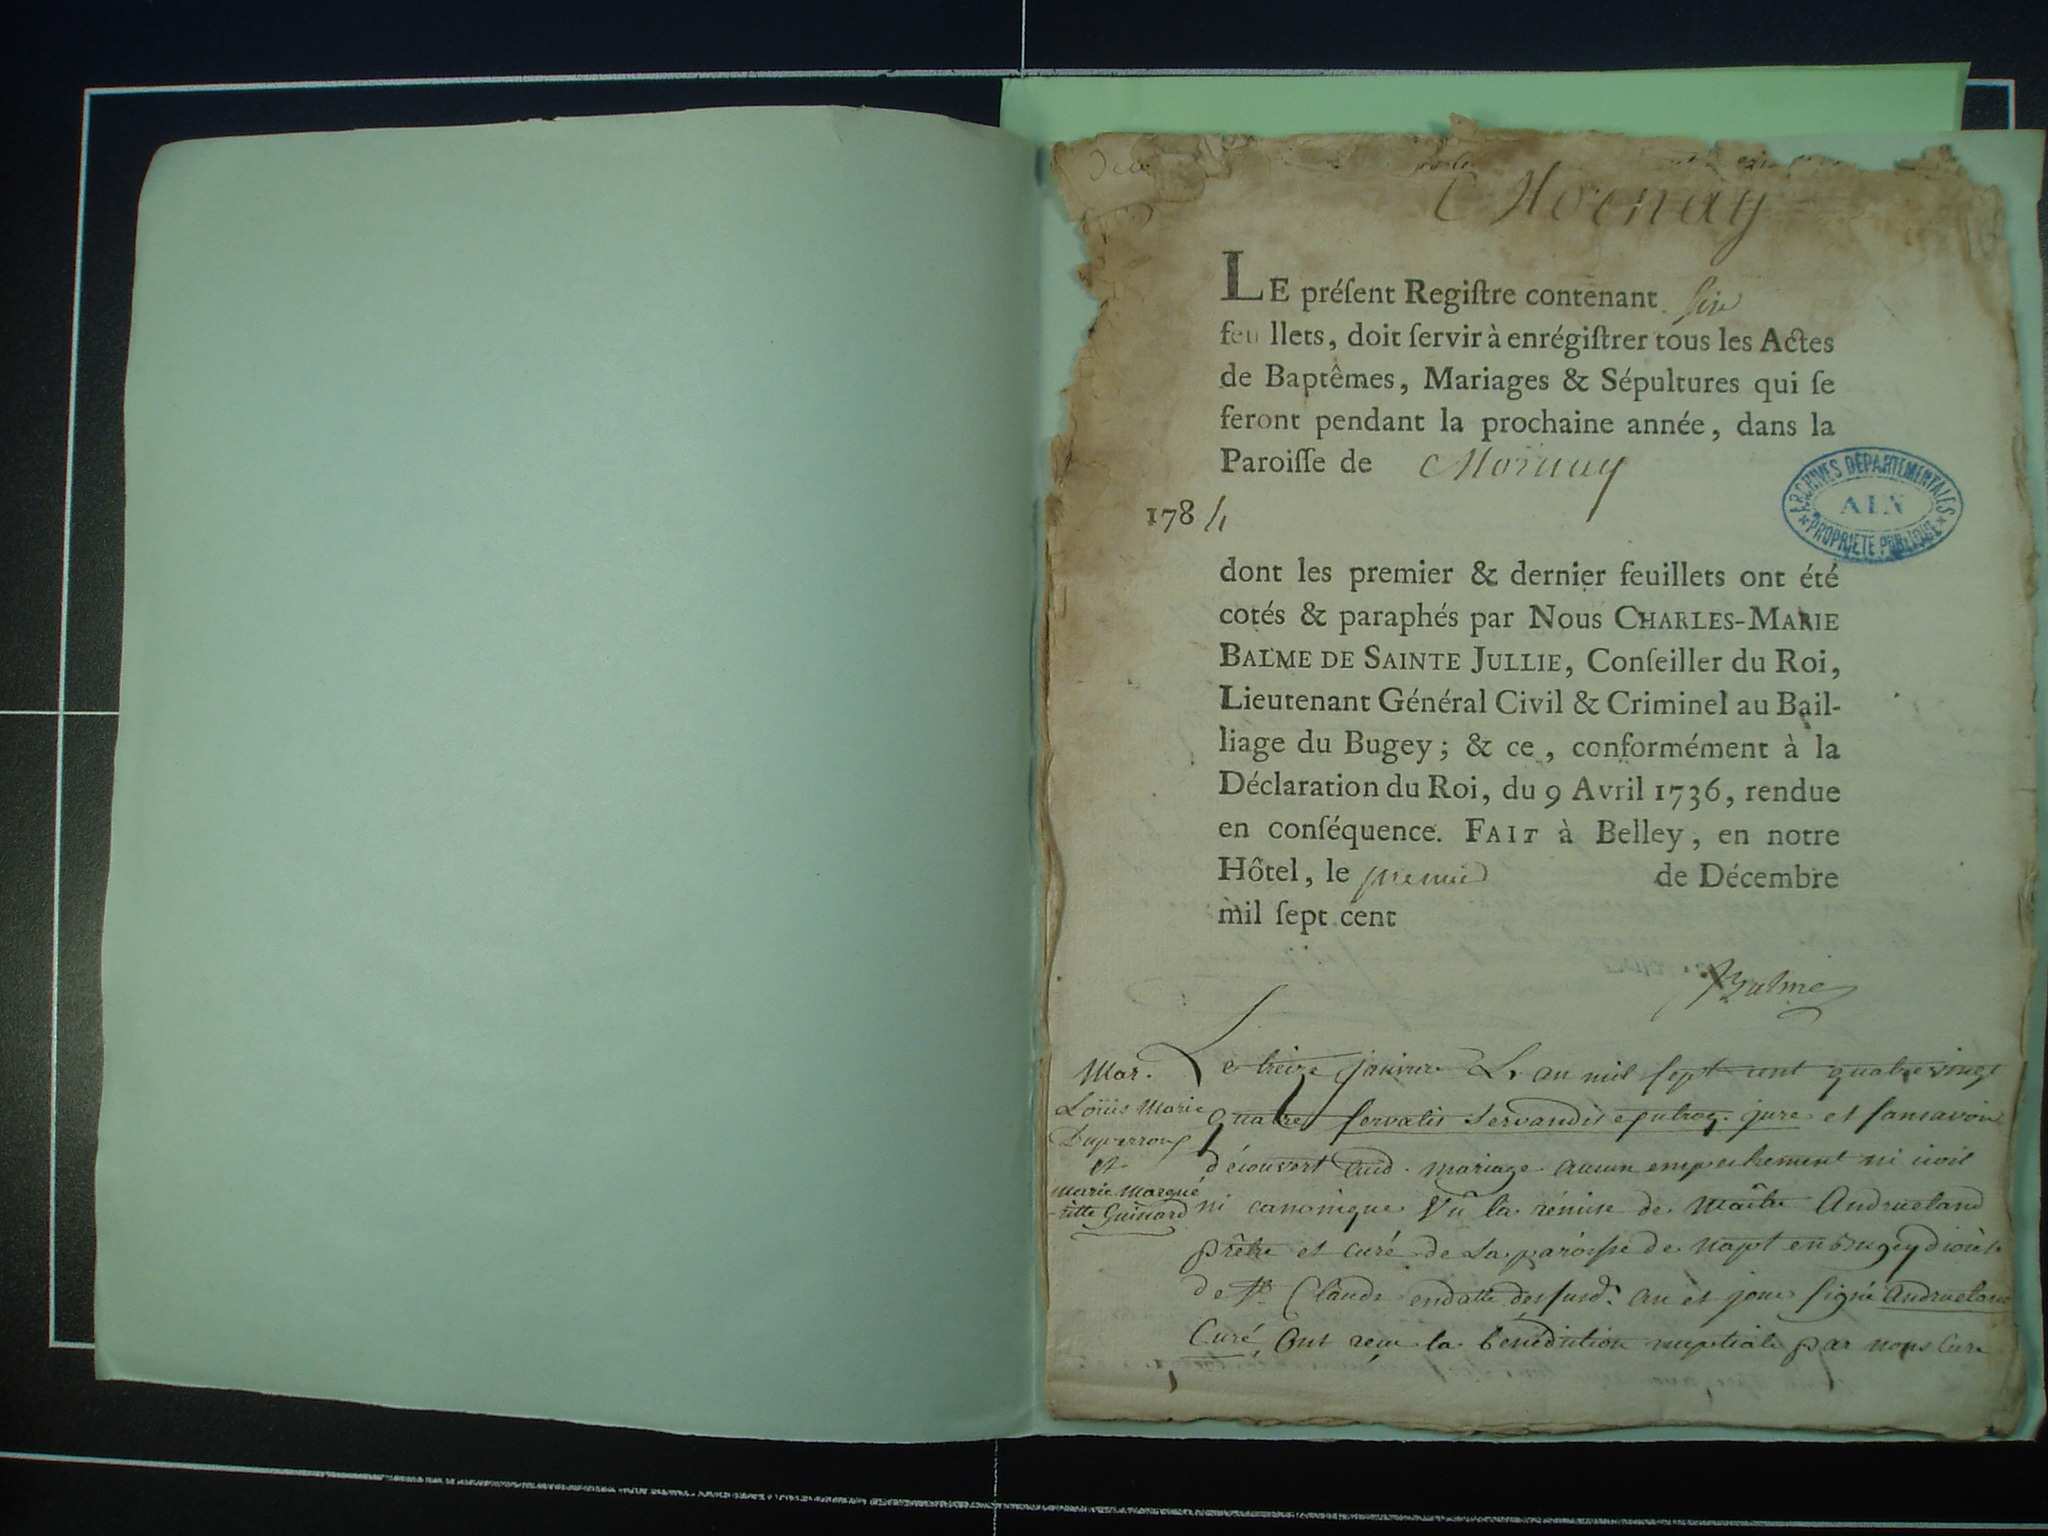 Mornay
LE préſent Regiſtre contenant six
feuillets, doit ſervir à enrégiſtrer tous les Actes
de Baptêmes, Mariages & Sépultures qui ſe
feront pendant la prochaine année, dans la
Paroiſſe de Mornay
1784
ARCHIVES DÉPARTEMENTALES
AIN
PROPRIÉTÉ PUBLIQUE
dont les premier & dernier feuillets ont été
cotés & paraphés par Nous CHARLES-MARIE
BALME DE SAINTE JULLIE, Conſeiller du Roi,
Lieutenant Général Civil & Criminel au Bail-
liage du Bugey; & ce, conformément à la
Déclaration du Roi, du 9 Avril 1736, rendue
en conſéquence. FAIT à Belley, en notre
Hôtel, le premier de Décembre
mil ſept cent
Balme
Mar.
Loüis Marie
Duperroux
et
Marie Margué
-ritte Guinard
Le treize janvier L'an mil sept cent quatre vingt
quatre servatis servandis jure et sans avoir
découvert aud. mariage aucun empechement ni civil
ni canonique Vû la remise de Maitre Andrueland
prêtre et curé de La paroisse de Napt en Bugey diocèse
de St. Claude en datte des susd. an et jour signé Andrueland
Curé, Ont reçu la bénédiction nuptiale par nous Curé